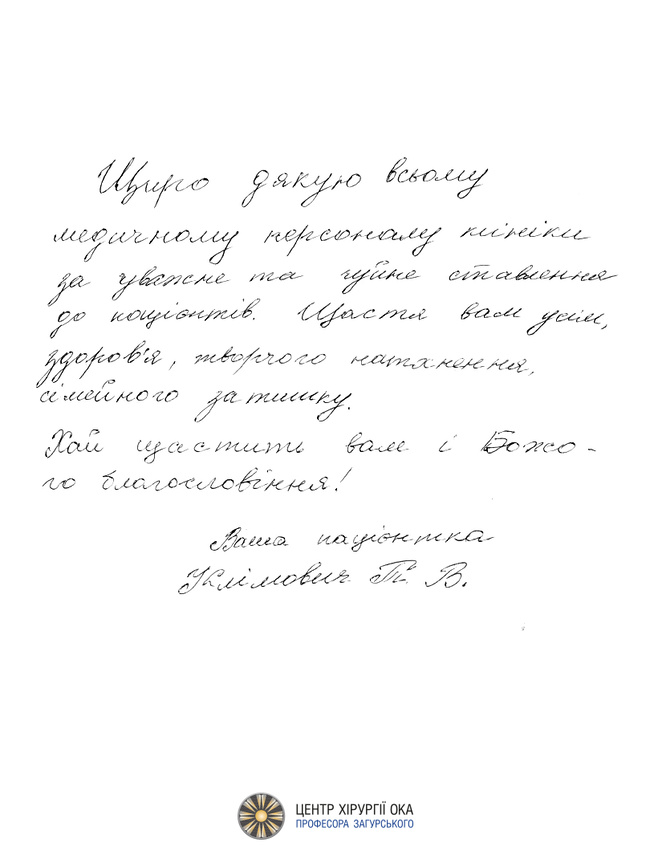 Щиро дякую всьому
медичному персоналу клініки
за уважне та чуйне ставлення
до пацієнтів. Щастя вам усім,
здоров'я, творчого натхнення,
сімейного затишку.
Хай щастить вам і Божо-
го благословіння!
Ваша пацієнтка
Клімович Т. В.
ЦЕНТР ХІРУРГІЇ ОКА
ПРОФЕСОРА ЗАГУРСЬКОГО